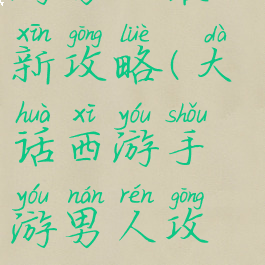 xīn gōng lüè dà
新攻略(大
huà xī yóu shǒu
话西游手
yóu nán rén gōng
游男人攻